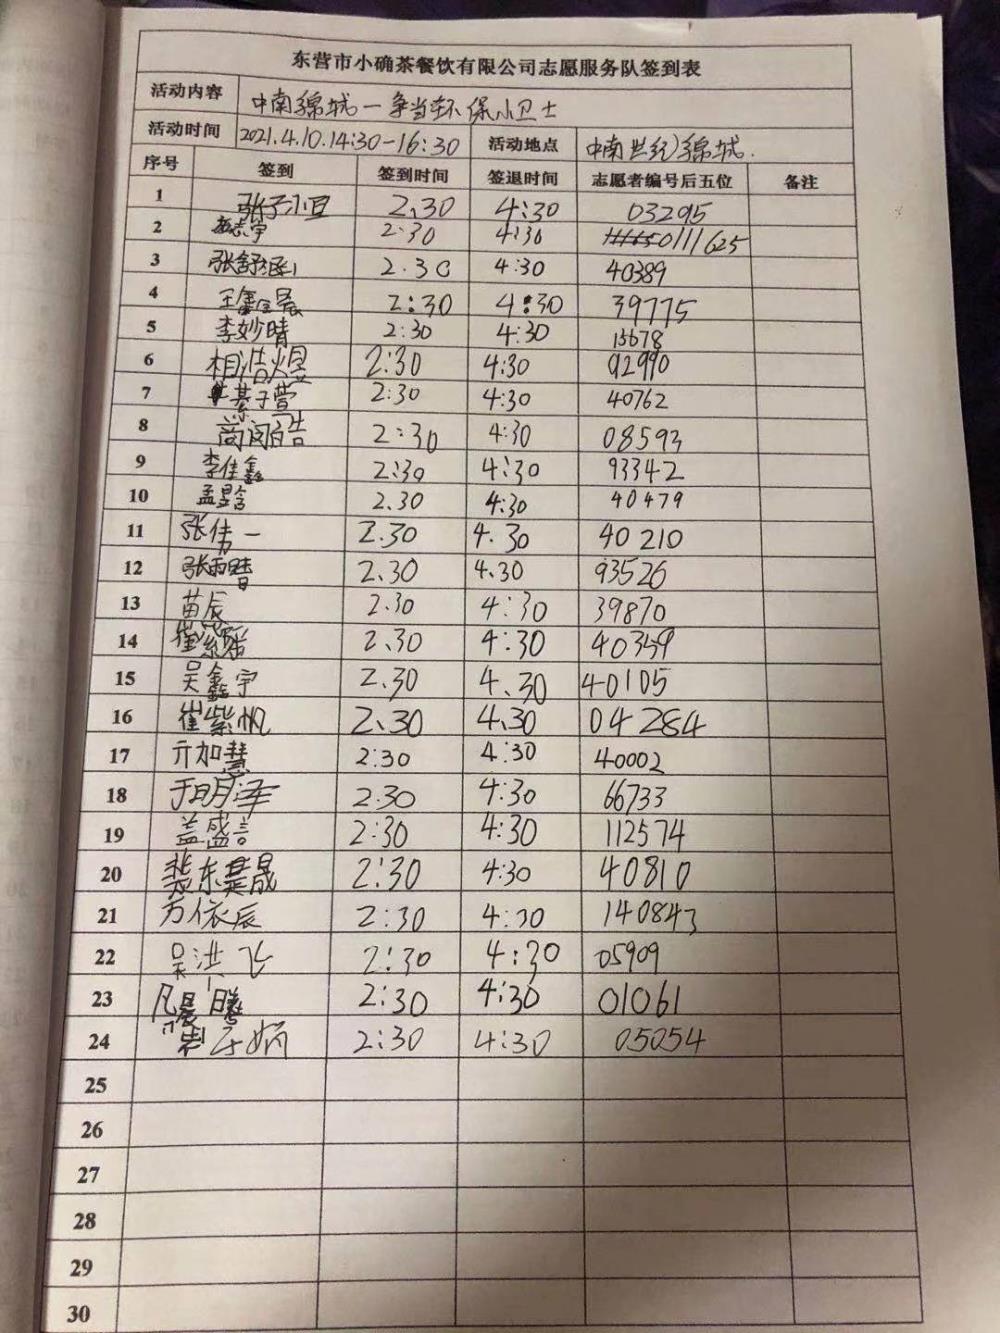 东营市小确茶餐饮有限公司志愿服务队签到表
活动内容 中南锦城一争当环保小卫士
活动时间 2021.4.10.14:30-16:30 活动地点 中南世纪锦城.
序号 签到 签到时间 签退时间 志愿者编号后五位 备注
1 2.30 4:30 03295
2 2:30 4:30 0111625
3 2.30 4:30 40389
4 王鑫晨 2:30 4:30 39775
5 李妙晴 2:30 4:30 15678
6 相浩煜 2:30 4:30 92990
7 2:30 4:30 40762
8 2:30 4:30 08593
9 李佳鑫 2:30 4:30 93342
10 孟晗 2.30 4:30 40479
11 2.30 4.30 40210
12 张雨晴 2.30 4.30 93526
13 苗辰 2.30 4:30 39870
14 2.30 4:30 40359
15 吴鑫宇 2.30 4.30 40105
16 崔紫帆 2.30 4.30 04284
17 亓加慧 2:30 4:30 40002
18 于明泽 2:30 4:30 66733
19 盖盛言 2:30 4:30 112574
20 2:30 4:30 40810
21 方依辰 2:30 4:30 140843
22 吴洪飞 2:30 4:30 05909
23 2:30 4:30 01061
24 2:30 4:30 05054
25
26
27
28
29
30